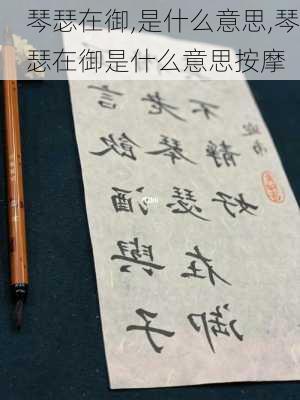 琴瑟在御,是什么意思,琴
瑟在御是什么意思按摩
言飲酒與子
老琴瑟在御
不靜好